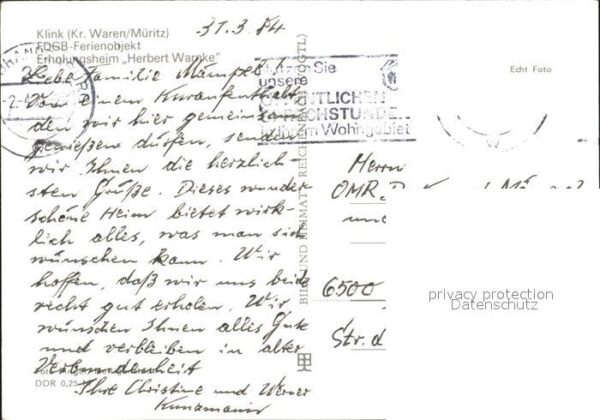 31.3.84
Klink (Kr. Waren/Müritz)
FDGB-Ferienobjekt
Erholungsheim „Herbert Warnke"
Echt Foto
Liebe Familie
Von einem Kuraufenthalt
den wir hier gemeinsam
genießen dürfen, senden
wir Ihnen die herzlich-
sten Grüße. Dieses wunder
schöne Heim bietet wirk-
lich alles, was man sich
wünschen kann. Wir
hoffen, daß wir uns beide
recht gut erholen. Wir
wünschen Ihnen alles Gute
und verbleiben in alter
Verbundenheit
Ihre Christine und Werner
Kunzmann
DDR 0,25
Nutzen Sie
unsere
ÖFFENTLICHEN
SPRECHSTUNDEN
in Ihrem Wohngebiet
BILD UND HEIMAT REICHENBACH (VOGTL)
Herrn
OMR.
und
6500
Str. d
privacy protection
Datenschutz